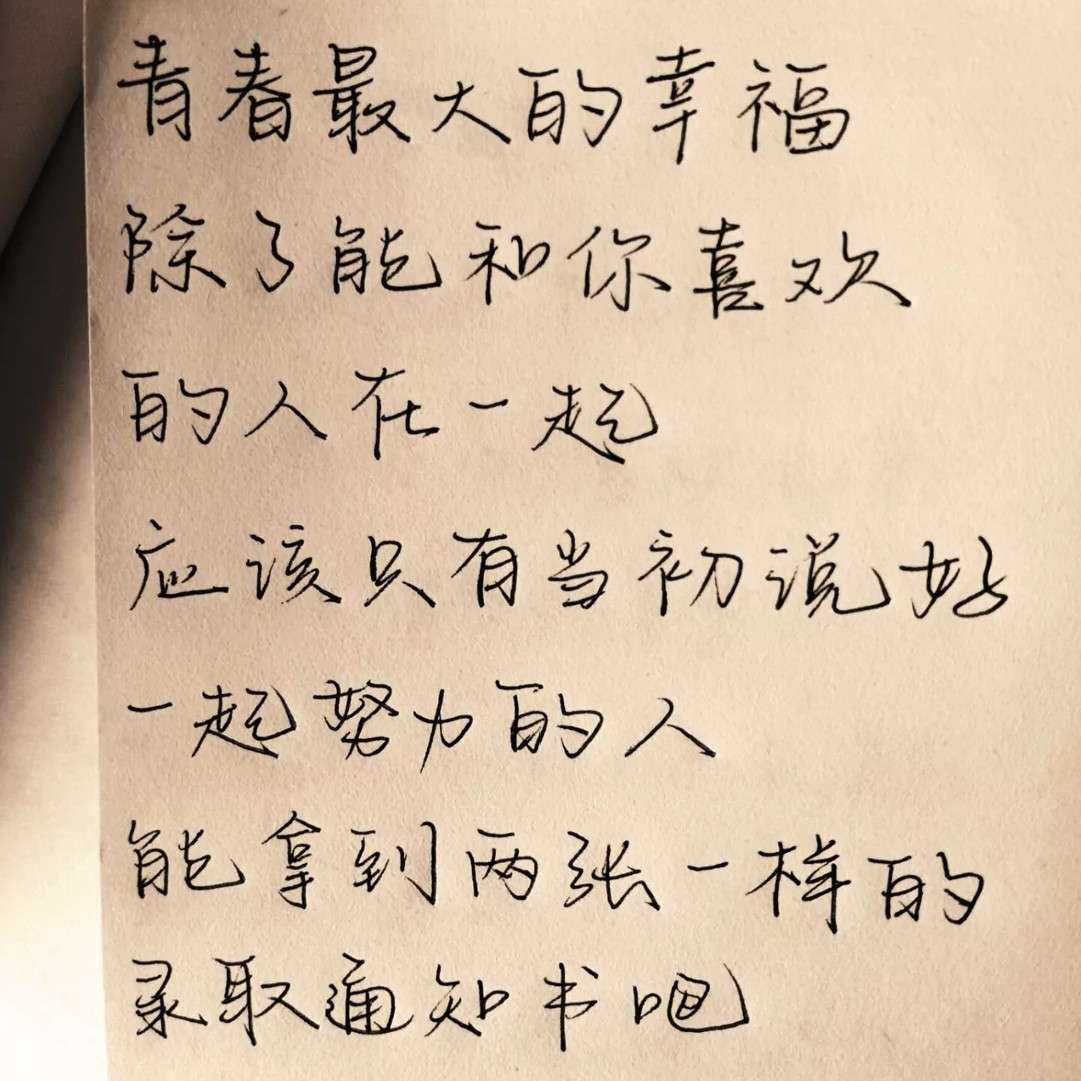 青春最大的幸福
除了能和你喜欢
的人在一起
应该只有当初说好
一起努力的人
能拿到两张一样的
录取通知书吧